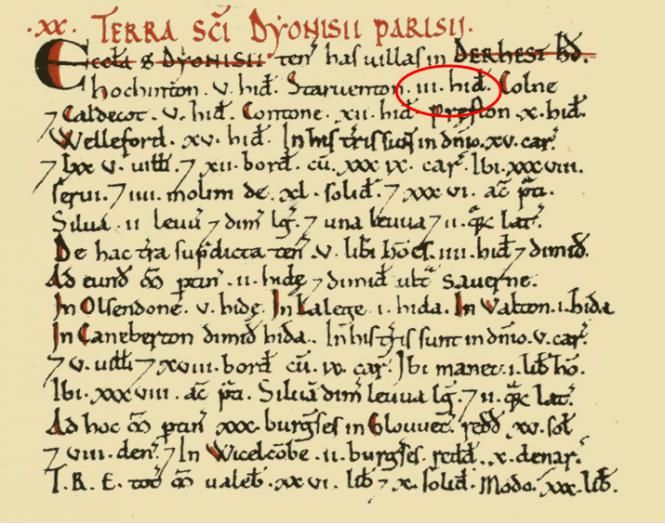 ·XX· TERRA SC̄I DYONISII PARISII·
Eccl̄a S̄ DYONISII ten̄ has uillas in DERHEST HD̄.
Chochinton· v· hid̄. Staruenton· iii· hid̄. Colne
⁊ Caldecot· v· hid̄. Contone· xii· hid̄ Preston· x· hid̄.
Welleford· xv· hid̄. In his t̄ris sun̄ in dn̄io· xv· car̄
⁊ lxx v· uill̄i ⁊ xii· bord̄ cū· xxx ix· car̄. Ibi· xxxviii·
serui· ⁊ iiii· molini de· xl· solid̄· ⁊ xxxvi· ac̄ p̄ti.
Silua· ii· leuū ⁊ dim̄ lḡ· ⁊ una leuua ⁊ ii· qr̄x lat̄.
De hac t̄ra sup̄dicta ten̄· v· lib̄i hōes· iiii· hid̄ ⁊ dimid̄.
Ad eund̄ m̄ ptin̄· ii· hidę ⁊ dimid̄ ult̄ Sauerne.
In Olsendone· v· hidę. In Lalege· i· hida. In Valton· i· hida
In Caneberton dimid̄ hida. In his t̄ris sunt in dn̄io· v· car̄
⁊ v· uill̄i ⁊ xviii· bord̄ cū· ix· car̄. Ibi manet· i· lib̄ hō.
Ibi· xxxviii· ac̄ p̄ti. Siluā dim̄ leuua lḡ· ⁊ ii· qr̄x lat̄.
Ad hoc m̄ ptin̄ xxx· burḡses in Glouuec̄· redd̄ xv· sol̄
⁊ viii· den̄· ⁊ In Wicelcōbe· ii· burḡses redd̄· x· denar̄.
T. R. E. tot̄ m̄ ualeb̄· xxvi· lib̄ ⁊ x· solid̄· Modo· xxx· lib̄.